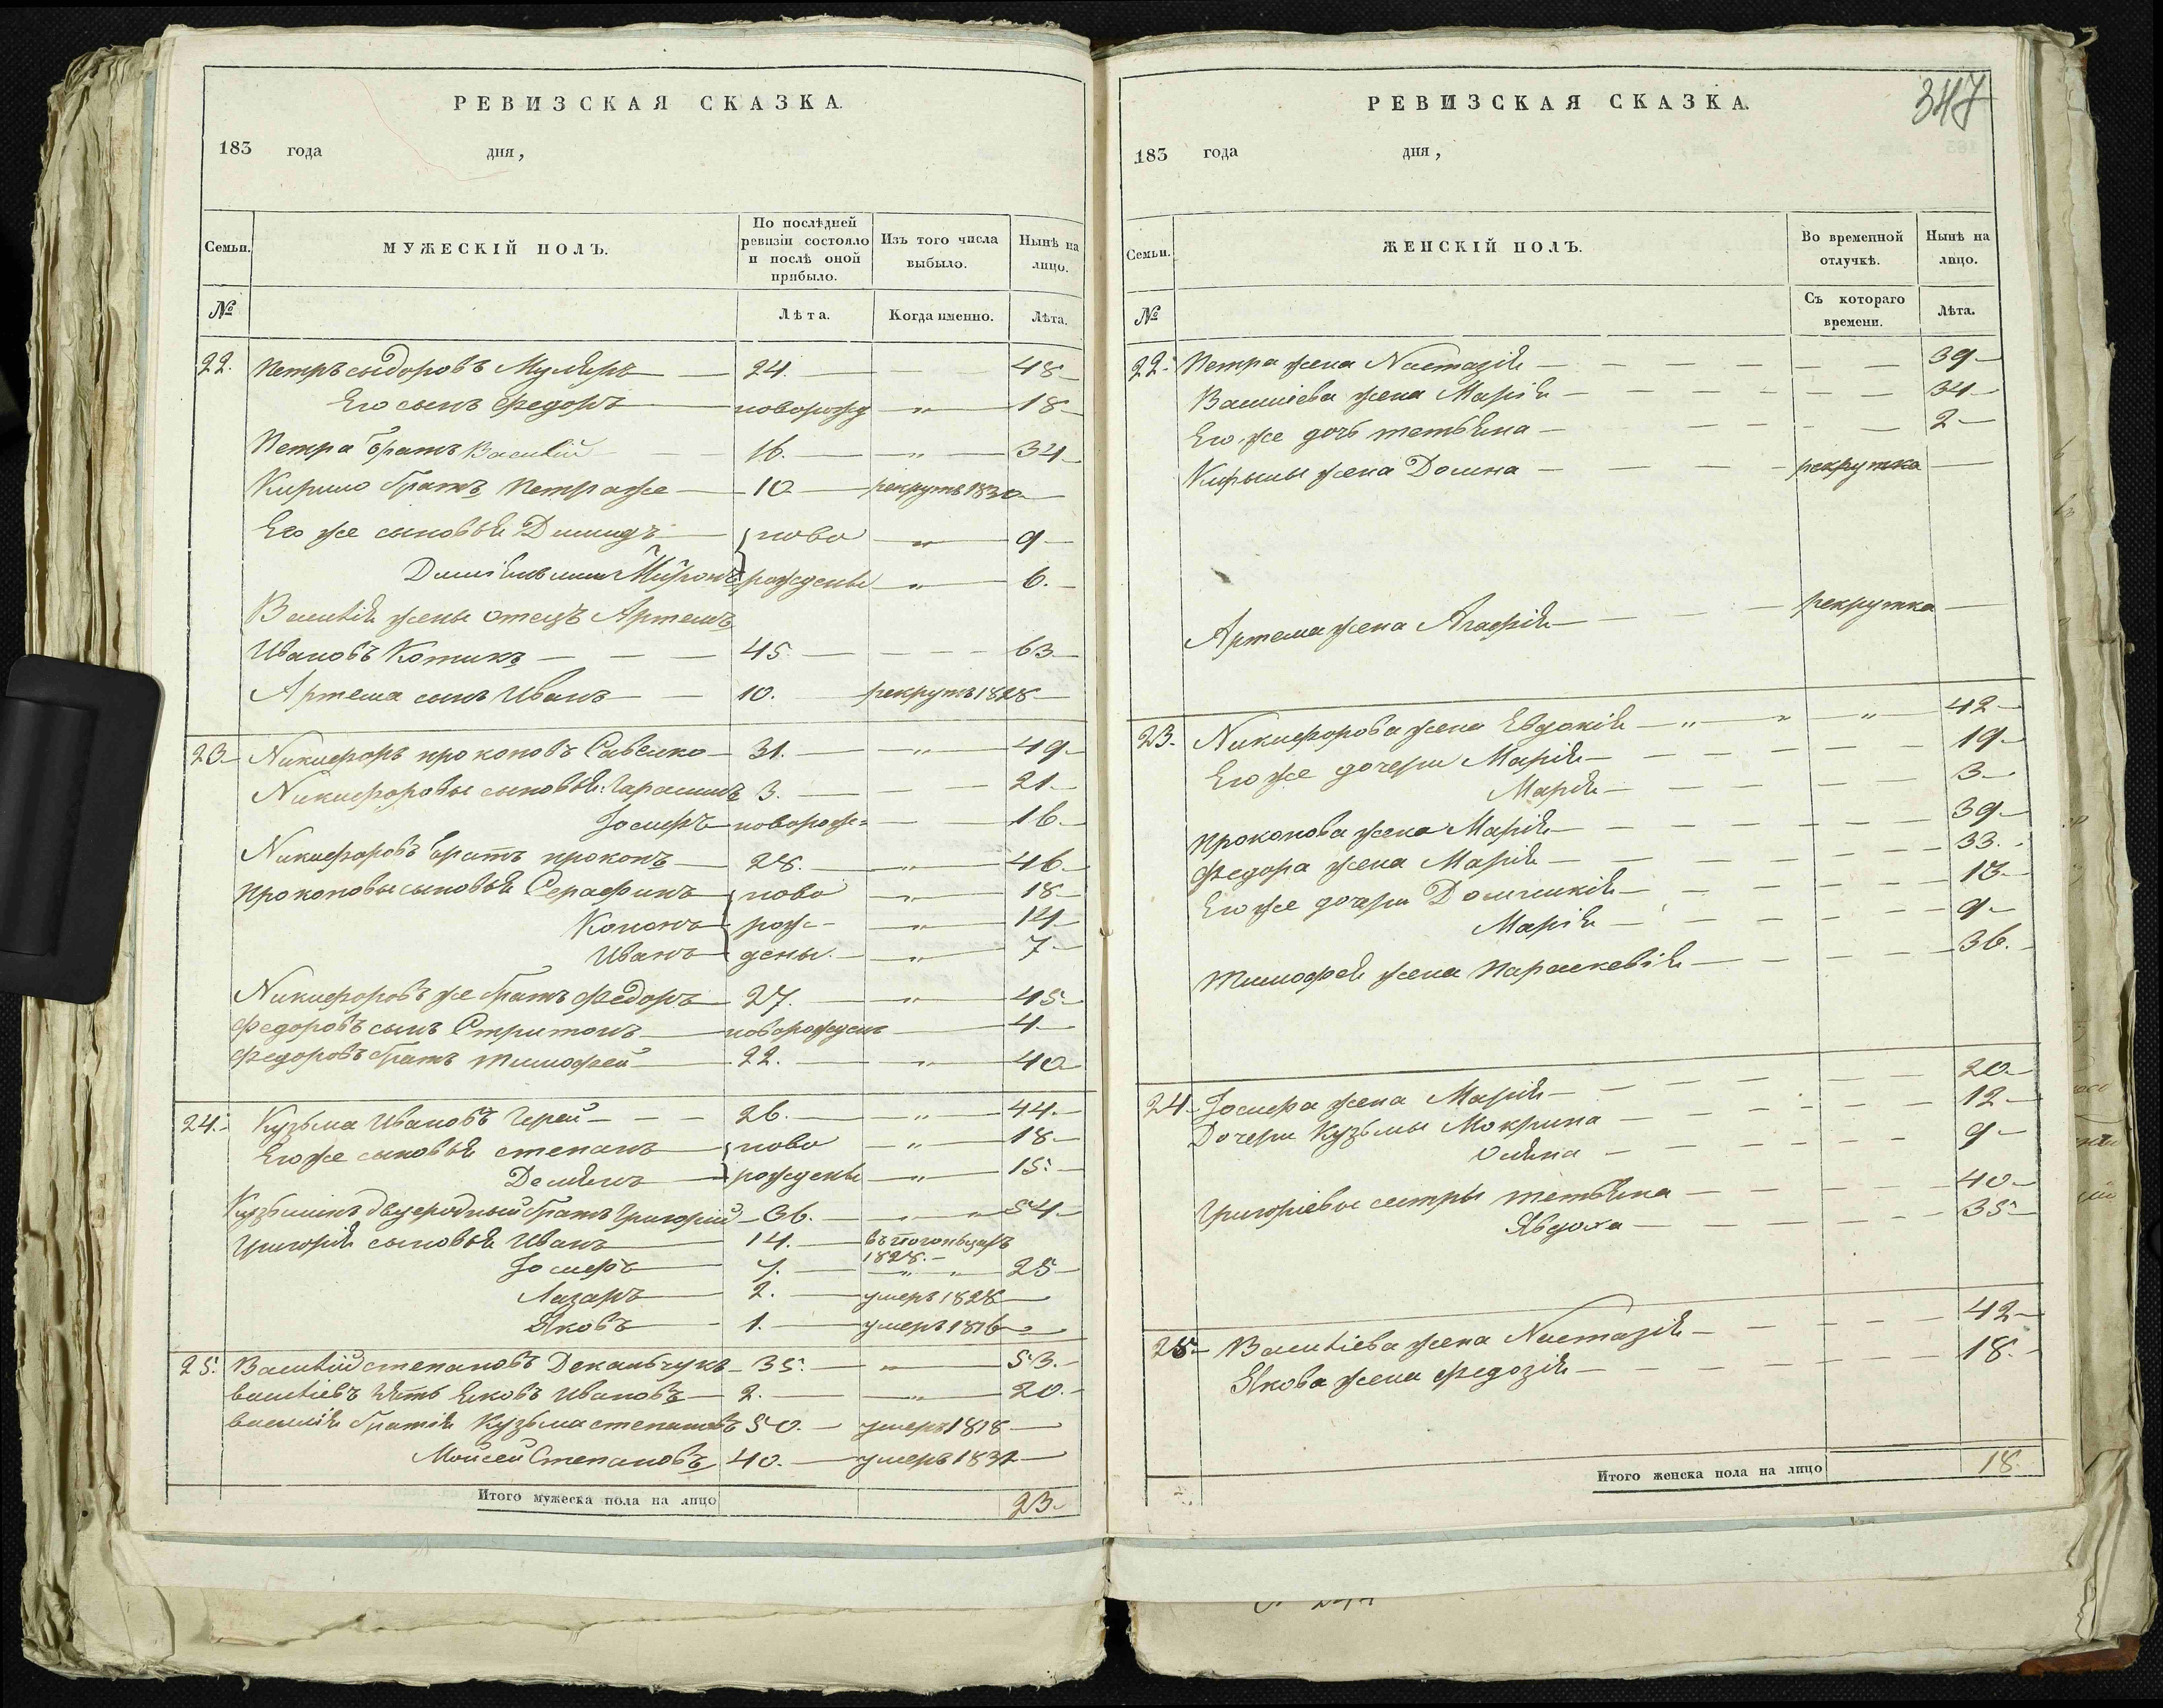 РЕВИЗСКАЯ СКАЗКА.
183 года дня,
Семьи. МУЖЕСКІЙ ПОЛЪ. По послѣдней ревизіи состояло и послѣ оной прибыло. Изъ того числа выбыло. Нынѣ на лицо.
№ Лѣта. Когда именно. Лѣта.
22. Петръ сыдоровъ Муляръ 24. 48
Его сынъ Федоръ новорожд " 18
Петра братъ Василій 16. " 34
Кирило братъ Петра же 10 рекрутъ 1830
Его же сыновья Демидъ ново " 9
Миронъ рождены " 6.
Василія жены отецъ Артемъ
Ивановъ Котикъ 45. 63
Артема сынъ Иванъ 10. рекрутъ 1828
23. Никифоръ прокоповъ Савенко 31. " 49
Никифоровы сыновья: Гарасимъ 3. 21
Іосифъ новорож= 16
Никифоровъ братъ прокопъ 28. " 46
Прокоповы сыновья Серафинъ ново " 18
Кононъ рож- " 14
Иванъ дены. " 7
Никифоровъ же братъ Федоръ 27. " 45
Федоровъ сынъ Стритонъ новорожденъ 4
Федоровъ братъ Тимофей 22. " 40
24. Кузьма Ивановъ Герей 26. " 44
Его же сыновья степанъ ново " 18
Демянъ рождены " 15.
Кузьминъ двуеродный братъ Григорій 36. " " 54
Григорія сыновья Иванъ 14. 1828.
Іосифъ 7. " " 25
Лазарь 2. умеръ 1828
Яковъ 1. умеръ 1816
25. Василій степановъ Деканьчукъ 35. " 53.
василіевъ зять Яковъ Ивановъ 2. " 20.
василія братія Кузьма степановъ 50. умеръ 1818
Мойсей Степановъ 40. умеръ 1831
Итого мужеска пола на лицо 23.
РЕВИЗСКАЯ СКАЗКА. 347
183 года дня,
Семьи. ЖЕНСКІЙ ПОЛЪ. Во временной отлучкѣ. Нынѣ на лицо.
№ Съ котораго времени. Лѣта.
22. Петра жена Настазія 39
Василіева жена Марія 34
Его же дочь Тетьяна 2
Кирылы жена Домна рекрутка
Артема жена Агафія рекрутка
23. Никифорова жена Евдокія " " " 42
Его же дочери Марія 19
Марія 3
Прокопова жена Марія 39
Федора жена Марія 33.
Его же дочери Доминикія 13
Марія 9
Тимофея жена Параскевія 36.
24. Іосифа жена Марія 20
Дочери Кузьмы Мокрина 12
Оляна 9
Григоріевы сестры Тетьяна 40
Явдоха 35
25. Василіева жена Настазія 42
Якова жена Федозія 18.
Итого женска пола на лицо 18.